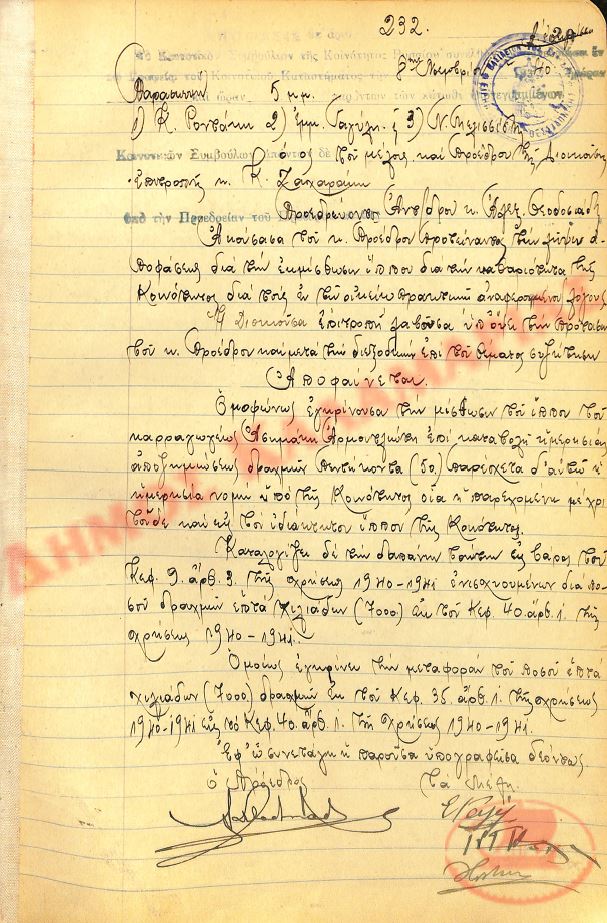 232.
Παρασκευή 5 μ.μ.
1) Κ. Ρουτάκη 2) Εμμ. 3) Ν. Μελισσίδη
Κοινοτικῶν Συμβούλων ἀπόντος δὲ
τοῦ μέλος καὶ Προέδρου τῆς Διοικούσης
Ἐπιτροπῆς κ. Κ. Ζαχαράκη
ὑπὸ τὴν Προεδρείαν τοῦ Προεδρεύοντος Ἀντιπρ. κ. Ἀλεξ. Θεοδοσιάδη
Ἀκούσασα τοῦ κ. Προέδρου προτείναντος τὴν λῆψιν ἀ-
ποφάσεως διὰ τὴν ἐκμίσθωσιν ἵππου διὰ τὴν καθαριότητα τῆς
Κοινότητος διὰ τοὺς ἐν τῷ οἰκείῳ πρακτικῷ ἀναφερομένους λόγους
Ἡ Διοικοῦσα ἐπιτροπὴ λαβοῦσα ὑπ' ὄψει τὴν πρότασιν
τοῦ κ. Προέδρου καὶ μετὰ τὴν διεξοδικὴν ἐπὶ τοῦ θέματος συζήτησιν
Ἀποφαίνεται.
Ὁμοφώνως ἐγκρίνουσα τὴν μίσθωσιν τοῦ ἵππου τοῦ
καρραγωγέως Ἀσημάκη ἐπὶ καταβολῇ ἡμερησίας
ἀποζημιώσεως δραχμῶν πεντήκοντα (50) παρέχεται δ' αὐτῷ ἡ
ἡμερησία νομὴ ὑπὸ τῆς Κοινότητος οἵα ἡ παρεχομένη μέχρι
τοῦδε καὶ εἰς τὸν ἰδιόκτητον ἵππον τῆς Κοινότητος.
Καταλογίζει δὲ τὴν δαπάνην ταύτην εἰς βάρος τοῦ
Κεφ. 9. ἄρθ. 3. τῆς χρήσεως 1940-1941 ἐνισχυομένων διὰ πο-
σοῦ δραχμῶν ἑπτὰ χιλιάδων (7000) ἐκ τοῦ Κεφ. 40. ἄρθ. 1. τῆς
χρήσεως 1940-1941.
Ὁμοίως ἐγκρίνει τὴν μεταφορὰν τοῦ ποσοῦ ἑπτὰ
χιλιάδων (7000) δραχμῶν ἐκ τοῦ Κεφ. 35 ἄρθ. 1. τῆς χρήσεως
1940-1941 εἰς τὸ Κεφ. 40. ἄρθ. 1. τῆς χρήσεως 1940-1941.
Ἐφ' ᾧ συνετάγη ἡ παροῦσα ὑπογραφεῖσα δεόντως
ὁ Πρόεδρος Τὰ Μέλη.
ΔΗΜΟΣ ΚΑΛΑΜΑΡΙΑΣ